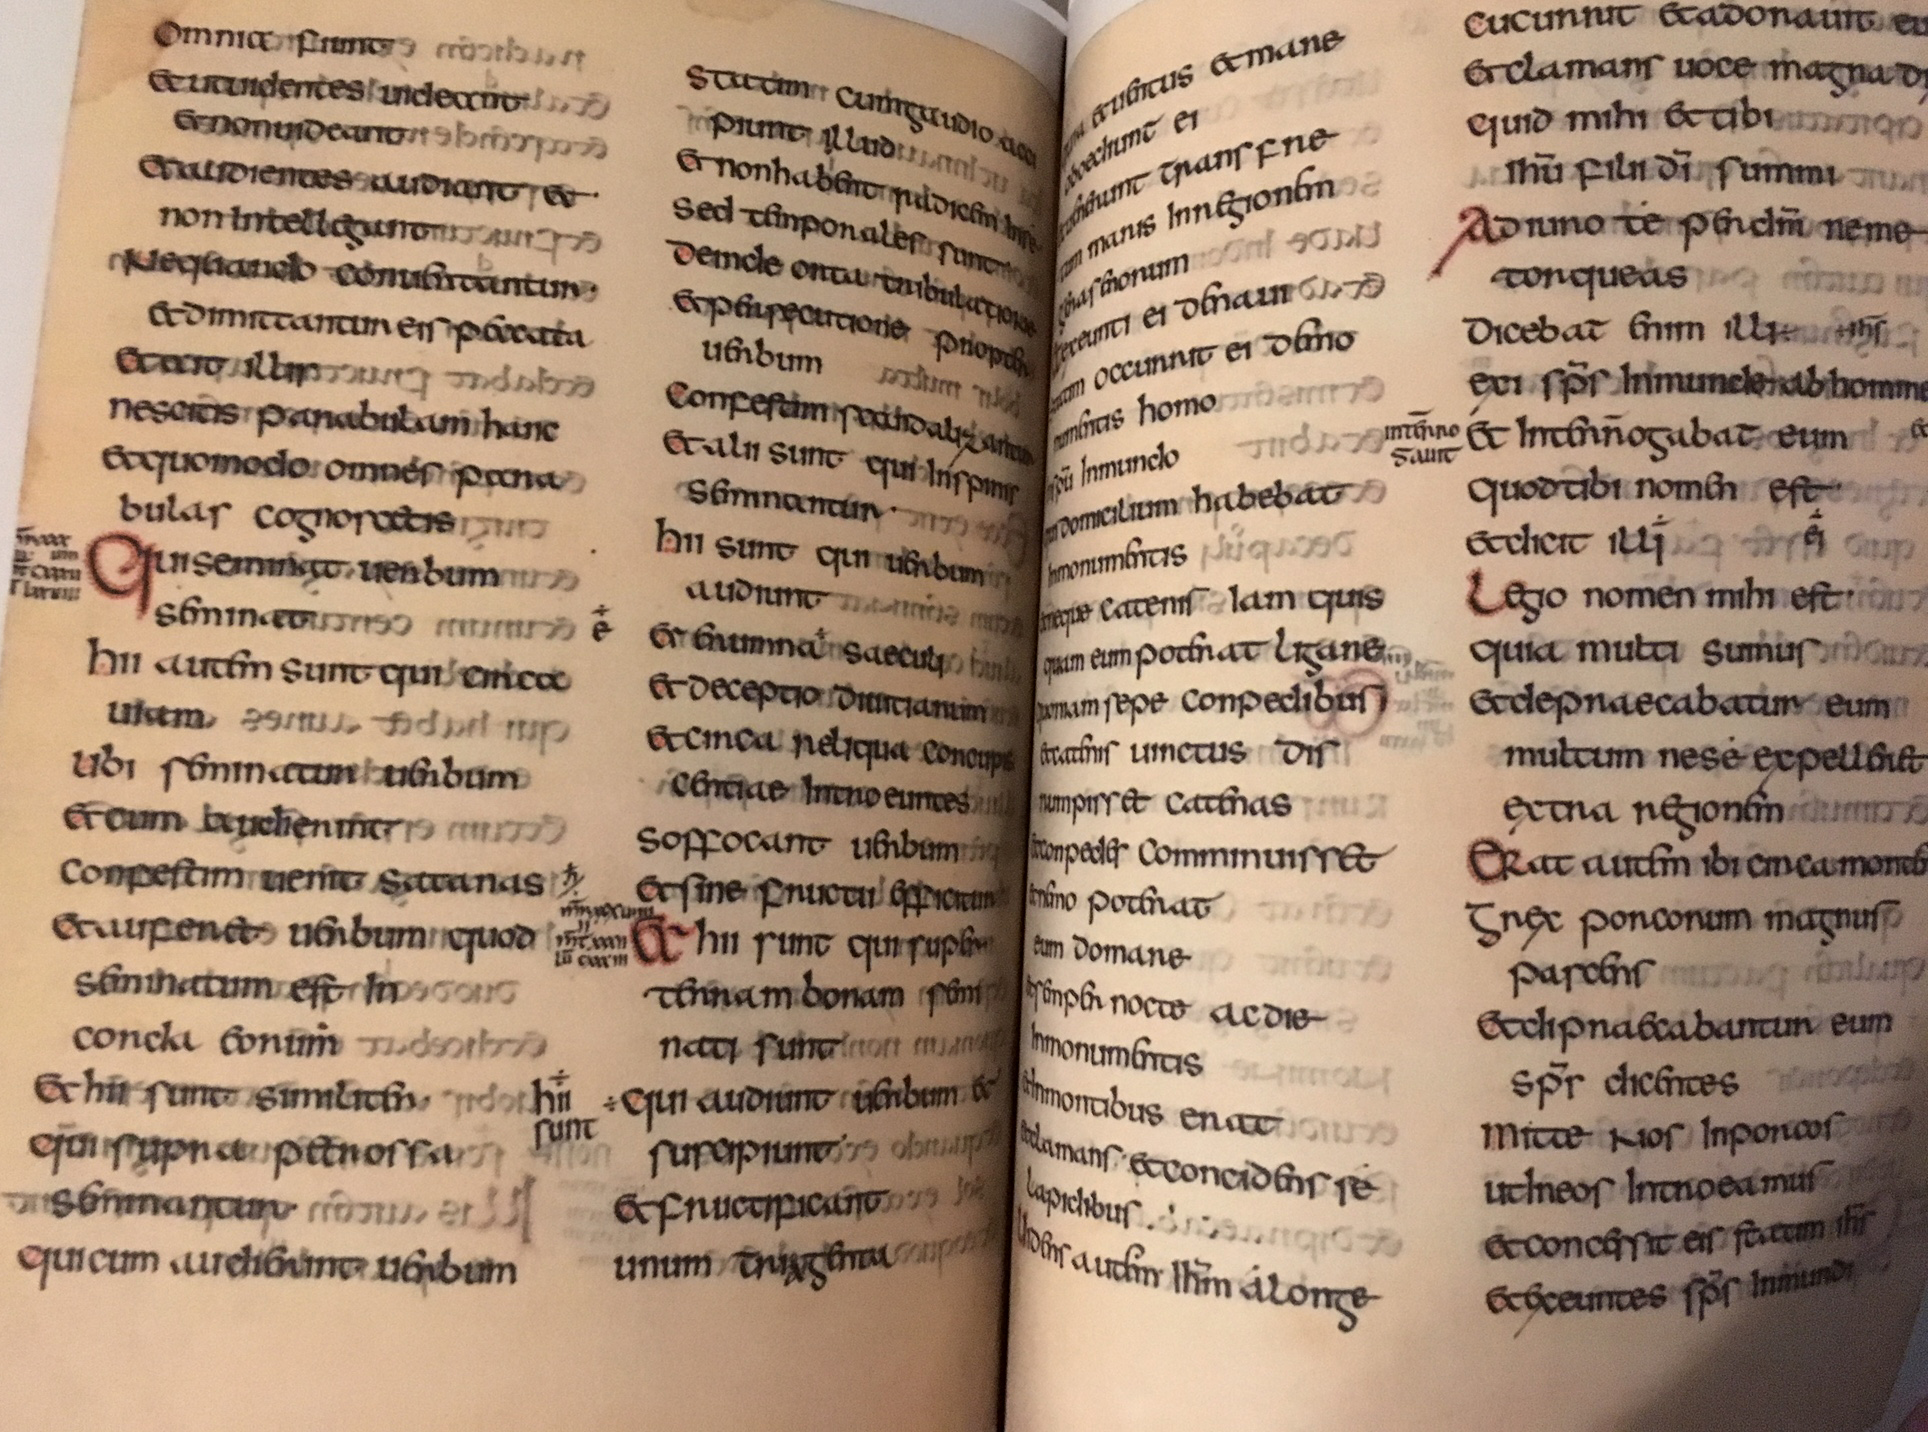 Omnia fiunt
Et ut uidentes uideant
et non uideant
Et audientes audiant et
non intellegunt
Nequando conuertantur
et dimittantur eis peccata
Et ait illis
nescitis parabulam hanc
Et quomodo omnes para
bulas cognoscetis
Qui seminat uerbum
seminat
hii autem sunt qui circa
uiam
ubi seminatur uerbum
Et cum audierint
confestim uenit satanas
Et auferet uerbum quod
seminatum est in
corda eorum
Et hii sunt similiter
hii
sunt
qui supra petrossa
seminantur
qui cum audierint uerbum
Statim cum gaudio acci
piunt illud
Et non habent radicem in se
Sed temporales sunt
Deinde orta tribulatione
Et persecutione propter
uerbum
Confestim scandalizantur
Et alii sunt qui in spinis
seminantur
hii sunt qui uerbum
audiunt
Et erumna saeculi
Et deceptio diuitiarum
Et circa reliqua concupis
centiae introeuntes
Soffocant uerbum
Et sine fructu efficitur
Et hii sunt qui super
terram bonam semi
nati sunt
qui audiunt uerbum et
suscipiunt
Et fructificant
unum trigenta
et uentus et mare
oboediunt ei
transfre
tum maris in regionem
gerasenorum
exeunti ei de naui
occurrit ei de mo
numentis homo
spu inmundo
domicilium habebat
in monumentis
neque catenis iam quis
quam eum poterat ligare
quoniam sepe conpedibus
et catenis uinctus dis
rumpisset catenas
et conpedes comminuisset
et nemo poterat
eum domare
et semper nocte ac die
in monumentis
et in montibus erat
clamans et concidens se
lapidibus
Uidens autem ihm a longe
cucurrit et adorauit eu
Et clamans uoce magna di
quid mihi et tibi
ihu fili di summi
Adiuro te per dm ne me
torqueas
Dicebat enim illi ihs
exi sps inmunde ab homine
interro
gauit
Et interrogabat eum
quod tibi nomen est
Et dicit illi
Legio nomen mihi est
quia multi sumus
Et depraecabatur eum
multum ne se expelleret
extra regionem
Erat autem ibi circa montem
Grex porcorum magnus
pascens
Et dipraecabantur eum
sps dicentes
Mitte nos in porcos
ut in eos introeamus
Et concessit eis statim ihs
Et exeuntes sps inmundi